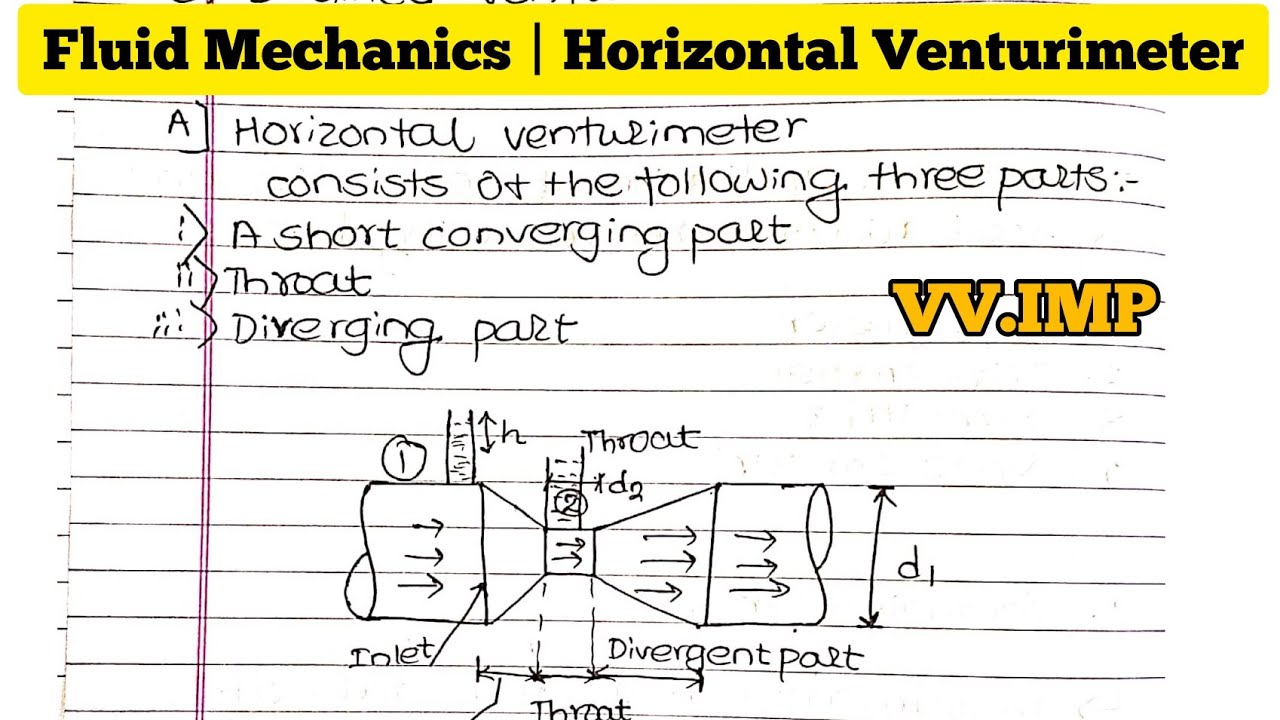 Fluid Mechanics | Horizontal Venturimeter
A] Horizontal venturimeter
consists of the following three parts:-
i) A short converging part
ii) Throat
iii) Diverging part
VV.IMP
h
①
Throat
d2
②
d1
Inlet
Divergent part
Throat